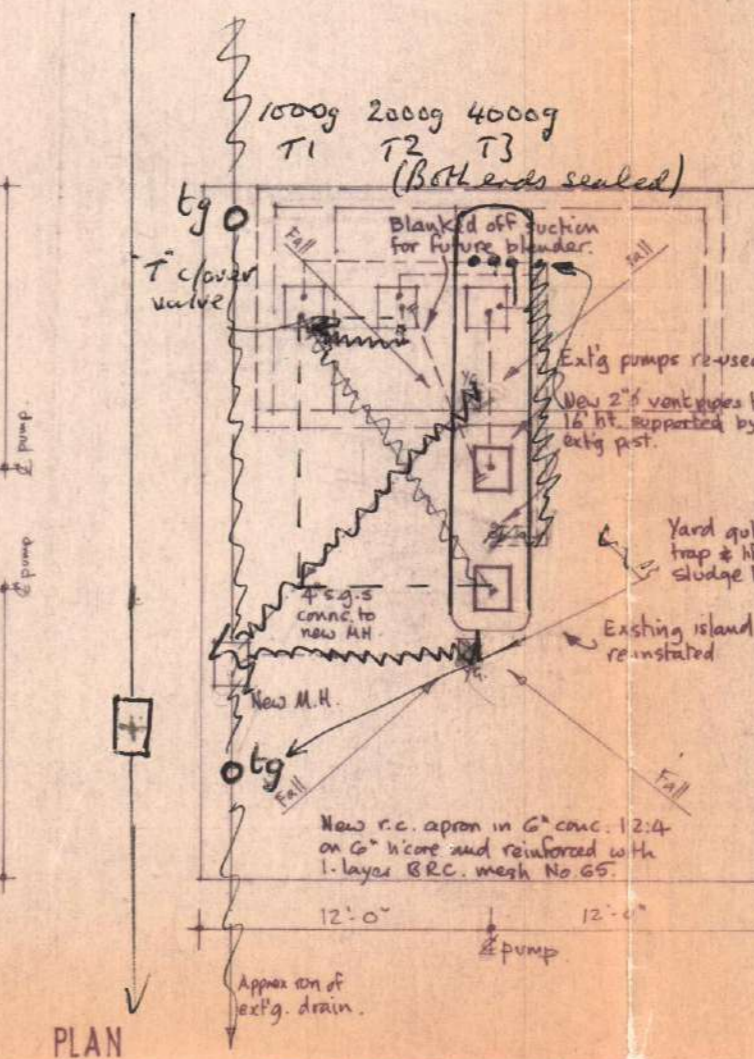 1000g 2000g 4000g
T1 T2 T3
(Both ends sealed)
tg
Fall
Blanked off suction
for future blender.
Fall
c/over
valve
Ext'g pumps re-used
New 2"ϕ vent pipes
16' ht. supported by
ext'g post.
Y.G.
Yard
trap &
sludge
℄ pump
℄ pump
4" s.g.s
connc. to
new MH.
Existing island
reinstated
Y.G.
New M.H.
tg
Fall
Fall
New r.c. apron in 6" conc. 1:2:4
on 6" h'core and reinforced with
1-layer BRC. mesh No.65.
12'-0" 12'-0"
℄ pump
Approx run of
ext'g. drain.
PLAN